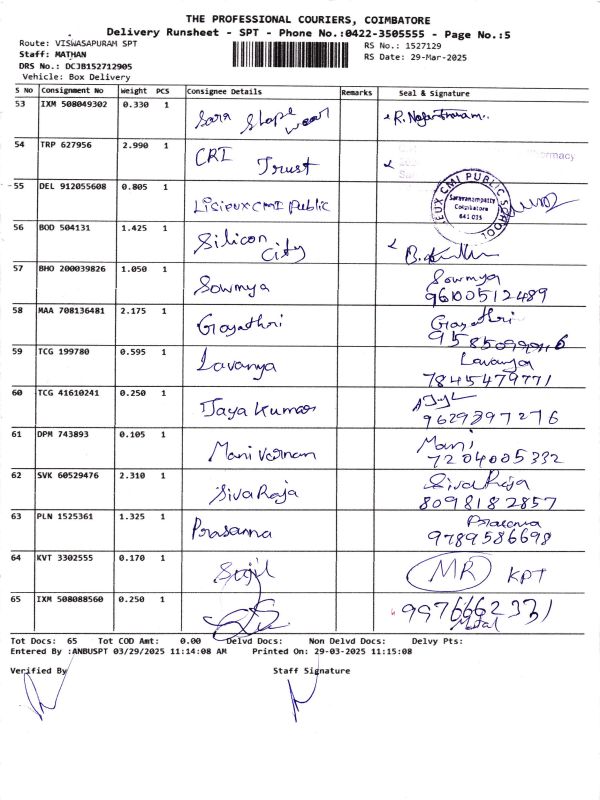 THE PROFESSIONAL COURIERS, COIMBATORE
Delivery Runsheet - SPT - Phone No.:0422-3505555 - Page No.:5
Route: VISWASAPURAM SPT
RS No.: 1527129
Staff: MATHAN
RS Date: 29-Mar-2025
DRS No.: DCJB152712905
Vehicle: Box Delivery
S No Consignment No Weight PCS Consignee Details Remarks Seal & Signature
53 IXM 508049302 0.330 1 Sara Shape wear
54 TRP 627956 2.990 1 CRI Trust
55 DEL 912055608 0.805 1 Lisieux CMI Public
EUX CMI PUBLIC SCHOOL
Saravanampatty
Coimbatore
641 035
56 BOD 504131 1.425 1 Silicon City
57 BHO 200039826 1.050 1 Sowmya Sowmya
96100512489
58 MAA 708136481 2.175 1 Gayathri Gayathri
59 TCG 199780 0.595 1 Lavanya Lavanya
7845479771
60 TCG 41610241 0.250 1 Jaya Kumar
9629397276
61 DPM 743893 0.105 1 Mani Mani
7204005332
62 SVK 60529476 2.310 1 Siva Raja Siva Raja
8098182857
63 PLN 1525361 1.325 1 Prasanna
9789586698
64 KVT 3302555 0.170 1 MR KPT
65 IXM 508088560 0.250 1
Tot Docs: 65 Tot COD Amt: 0.00 Delvd Docs: Non Delvd Docs: Delvy Pts:
Entered By :ANBUSPT 03/29/2025 11:14:08 AM Printed On: 29-03-2025 11:15:08
Verified By Staff Signature